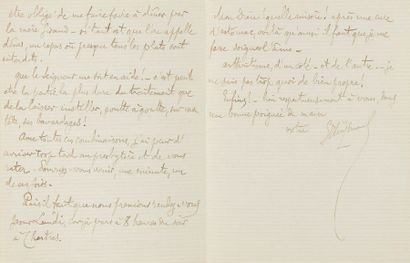 être obligé de me faire faire à dîner par
la mère Jirand - si tant est que l'on appelle
dîner, un repas où presque tous les plats sont
interdits !
que le Seigneur me soit en aide ! - c'est peut
être la partie la plus dure du traitement que
de la laisser instiller, goutte à goutte, sur ma
tête, ses bavardages !
Avec toutes ces combinaisons, j'ai peur d'
arriver trop tard au presbytère et de vous
rater. Pourrez-vous venir, une minute, un
de ces soirs.
Puis il faut que nous prenions rendez-vous
pour Lundi, car je pars à 8 heures du soir
à Chartres.
Mon Dieu ! quelle misère ! après une cure
d'estomac, voilà qu'aussi il faut que je me
fasse soigner l'âme -
arthritisme, d'un côté - et de l'autre - je
ne sais pas trop quoi de bien propre.
Enfin ! - bien respectueusement à vous, avec
une bonne poignée de main
votre